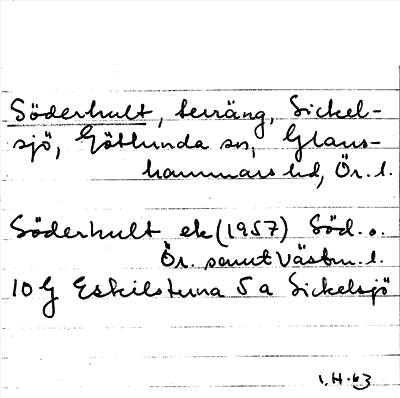 Söderhult, terräng, Sickel-
sjö, Götlunda sn, Glans-
hammars hd, Ör. l.
Söderhult ek (1957) Söd. o.
Ör. samt Västm. l.
10 G Eskilstuna 5 a Sickelsjö